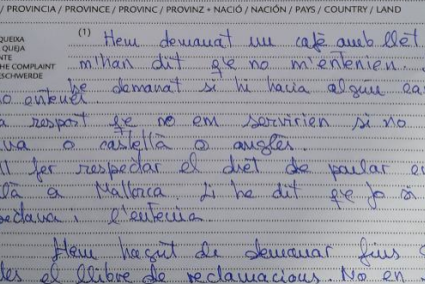 / PROVINCIA / PROVINCE / PROVINC / PROVINZ + NACIÓ / NACIÓN / PAYS / COUNTRY / LAND
QUEIXA
QUEJA
NTE
THE COMPLAINT
ESCHWERDE
(1) Hem demanat un cafè amb llet
m'han dit que no m'entenien.
he demanat si hi havia algún ca
o entenel
respost que no em servirien si no
va o castellà o anglès.
ll fer respectar el dret de parlar e
là a Mallorca. Li he dit que jo
eclava i l'entenia.
Hem hagut de demanar fins
des el llibre de reclamacions. No en